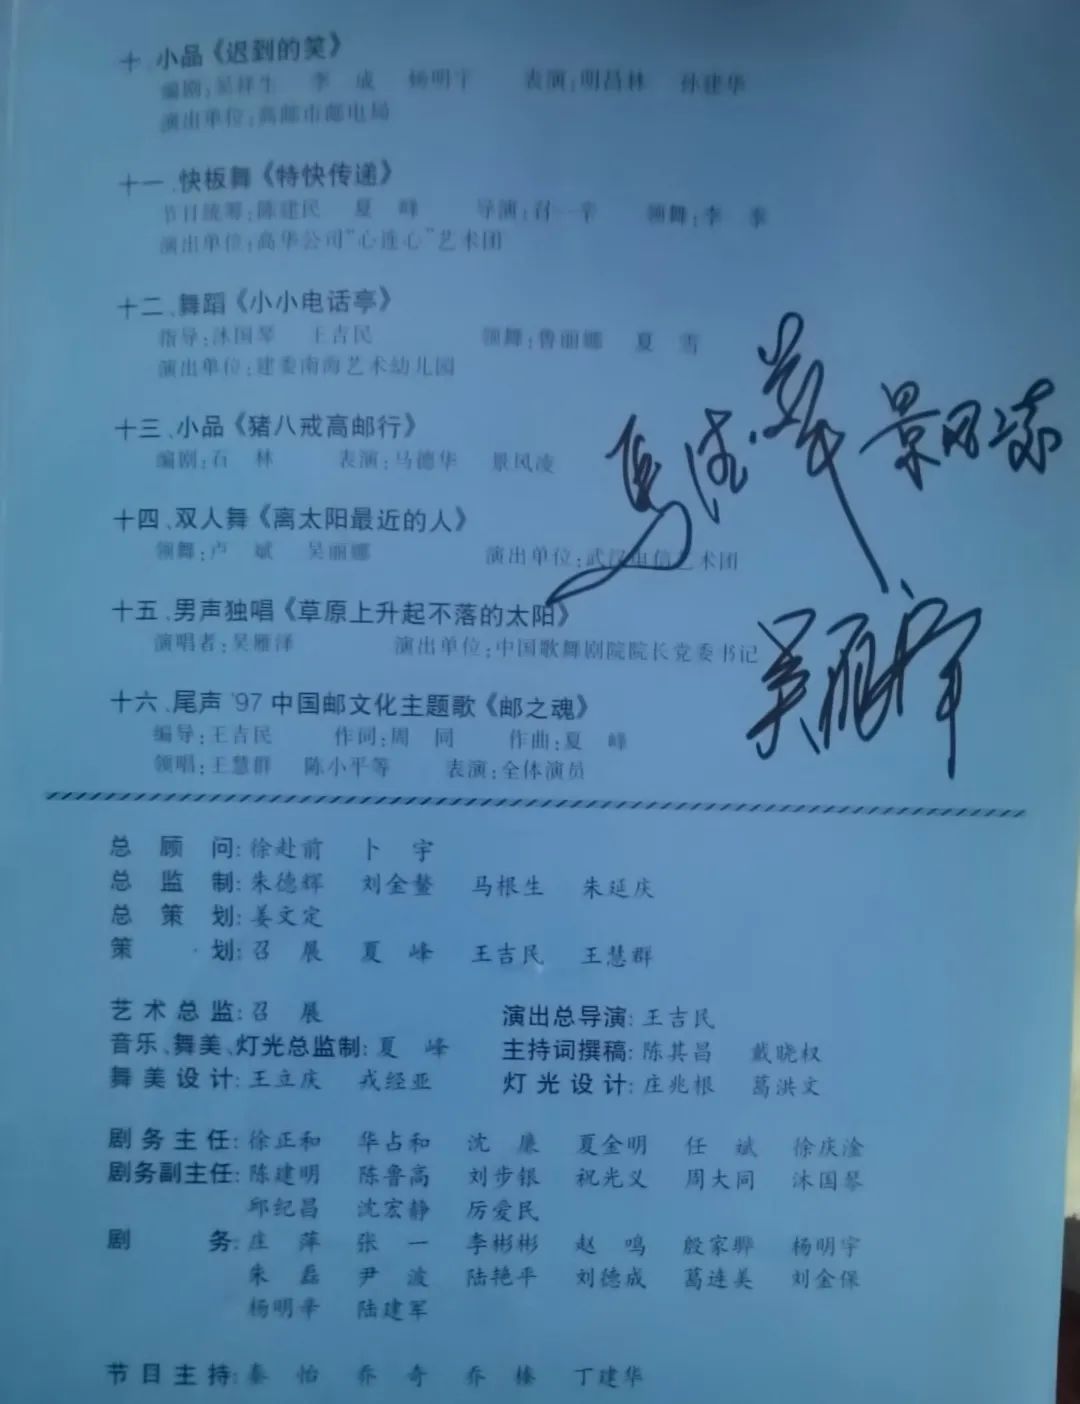 十、小品《迟到的笑》
编剧:吴祥生 李 成 杨明宇 表演:明昌林 孙建华
演出单位:高邮市邮电局
十一、快板舞《特快传递》
节目统筹:陈建民 夏 峰 导演:召一辛 领舞:李 泰
演出单位:高华公司“心连心”艺术团
十二、舞蹈《小小电话亭》
指导:沐国琴 王吉民 领舞:鲁丽娜 夏 雪
演出单位:建委南海艺术幼儿园
十三、小品《猪八戒高邮行》
编剧:石 林 表演:马德华 景风凌
马德华 景风凌
十四、双人舞《离太阳最近的人》
领舞:卢 斌 吴丽娜 演出单位:武汉电信艺术团
十五、男声独唱《草原上升起不落的太阳》
演唱者:吴雁泽 演出单位:中国歌舞剧院院长党委书记
吴雁泽
十六、尾声 '97中国邮文化主题歌《邮之魂》
编导:王吉民 作词:周 同 作曲:夏 峰
领唱:王慧群 陈小平等 表演:全体演员
总顾问:徐赴前 卜 宇
总监制:朱德辉 刘金鳌 马根生 朱延庆
总策划:姜文定
策划:召 展 夏 峰 王吉民 王慧群
艺术总监:召 展 演出总导演:王吉民
音乐、舞美、灯光总监制:夏 峰 主持词撰稿:陈其昌 戴晓权
舞美设计:王立庆 戎经亚 灯光设计:庄兆根 葛洪文
剧务主任:徐正和 华占和 沈 廉 夏金明 任 斌 徐庆淦
剧务副主任:陈建明 陈鲁高 刘步银 祝光义 周大同 沐国琴
邱纪昌 沈宏静 厉爱民
剧务:庄 萍 张 一 李彬彬 赵 鸣 殷家骅 杨明宇
朱 磊 尹 波 陆艳平 刘德成 葛连美 刘金保
杨明辛 陆建军
节目主持:秦 怡 乔 奇 乔 榛 丁建华